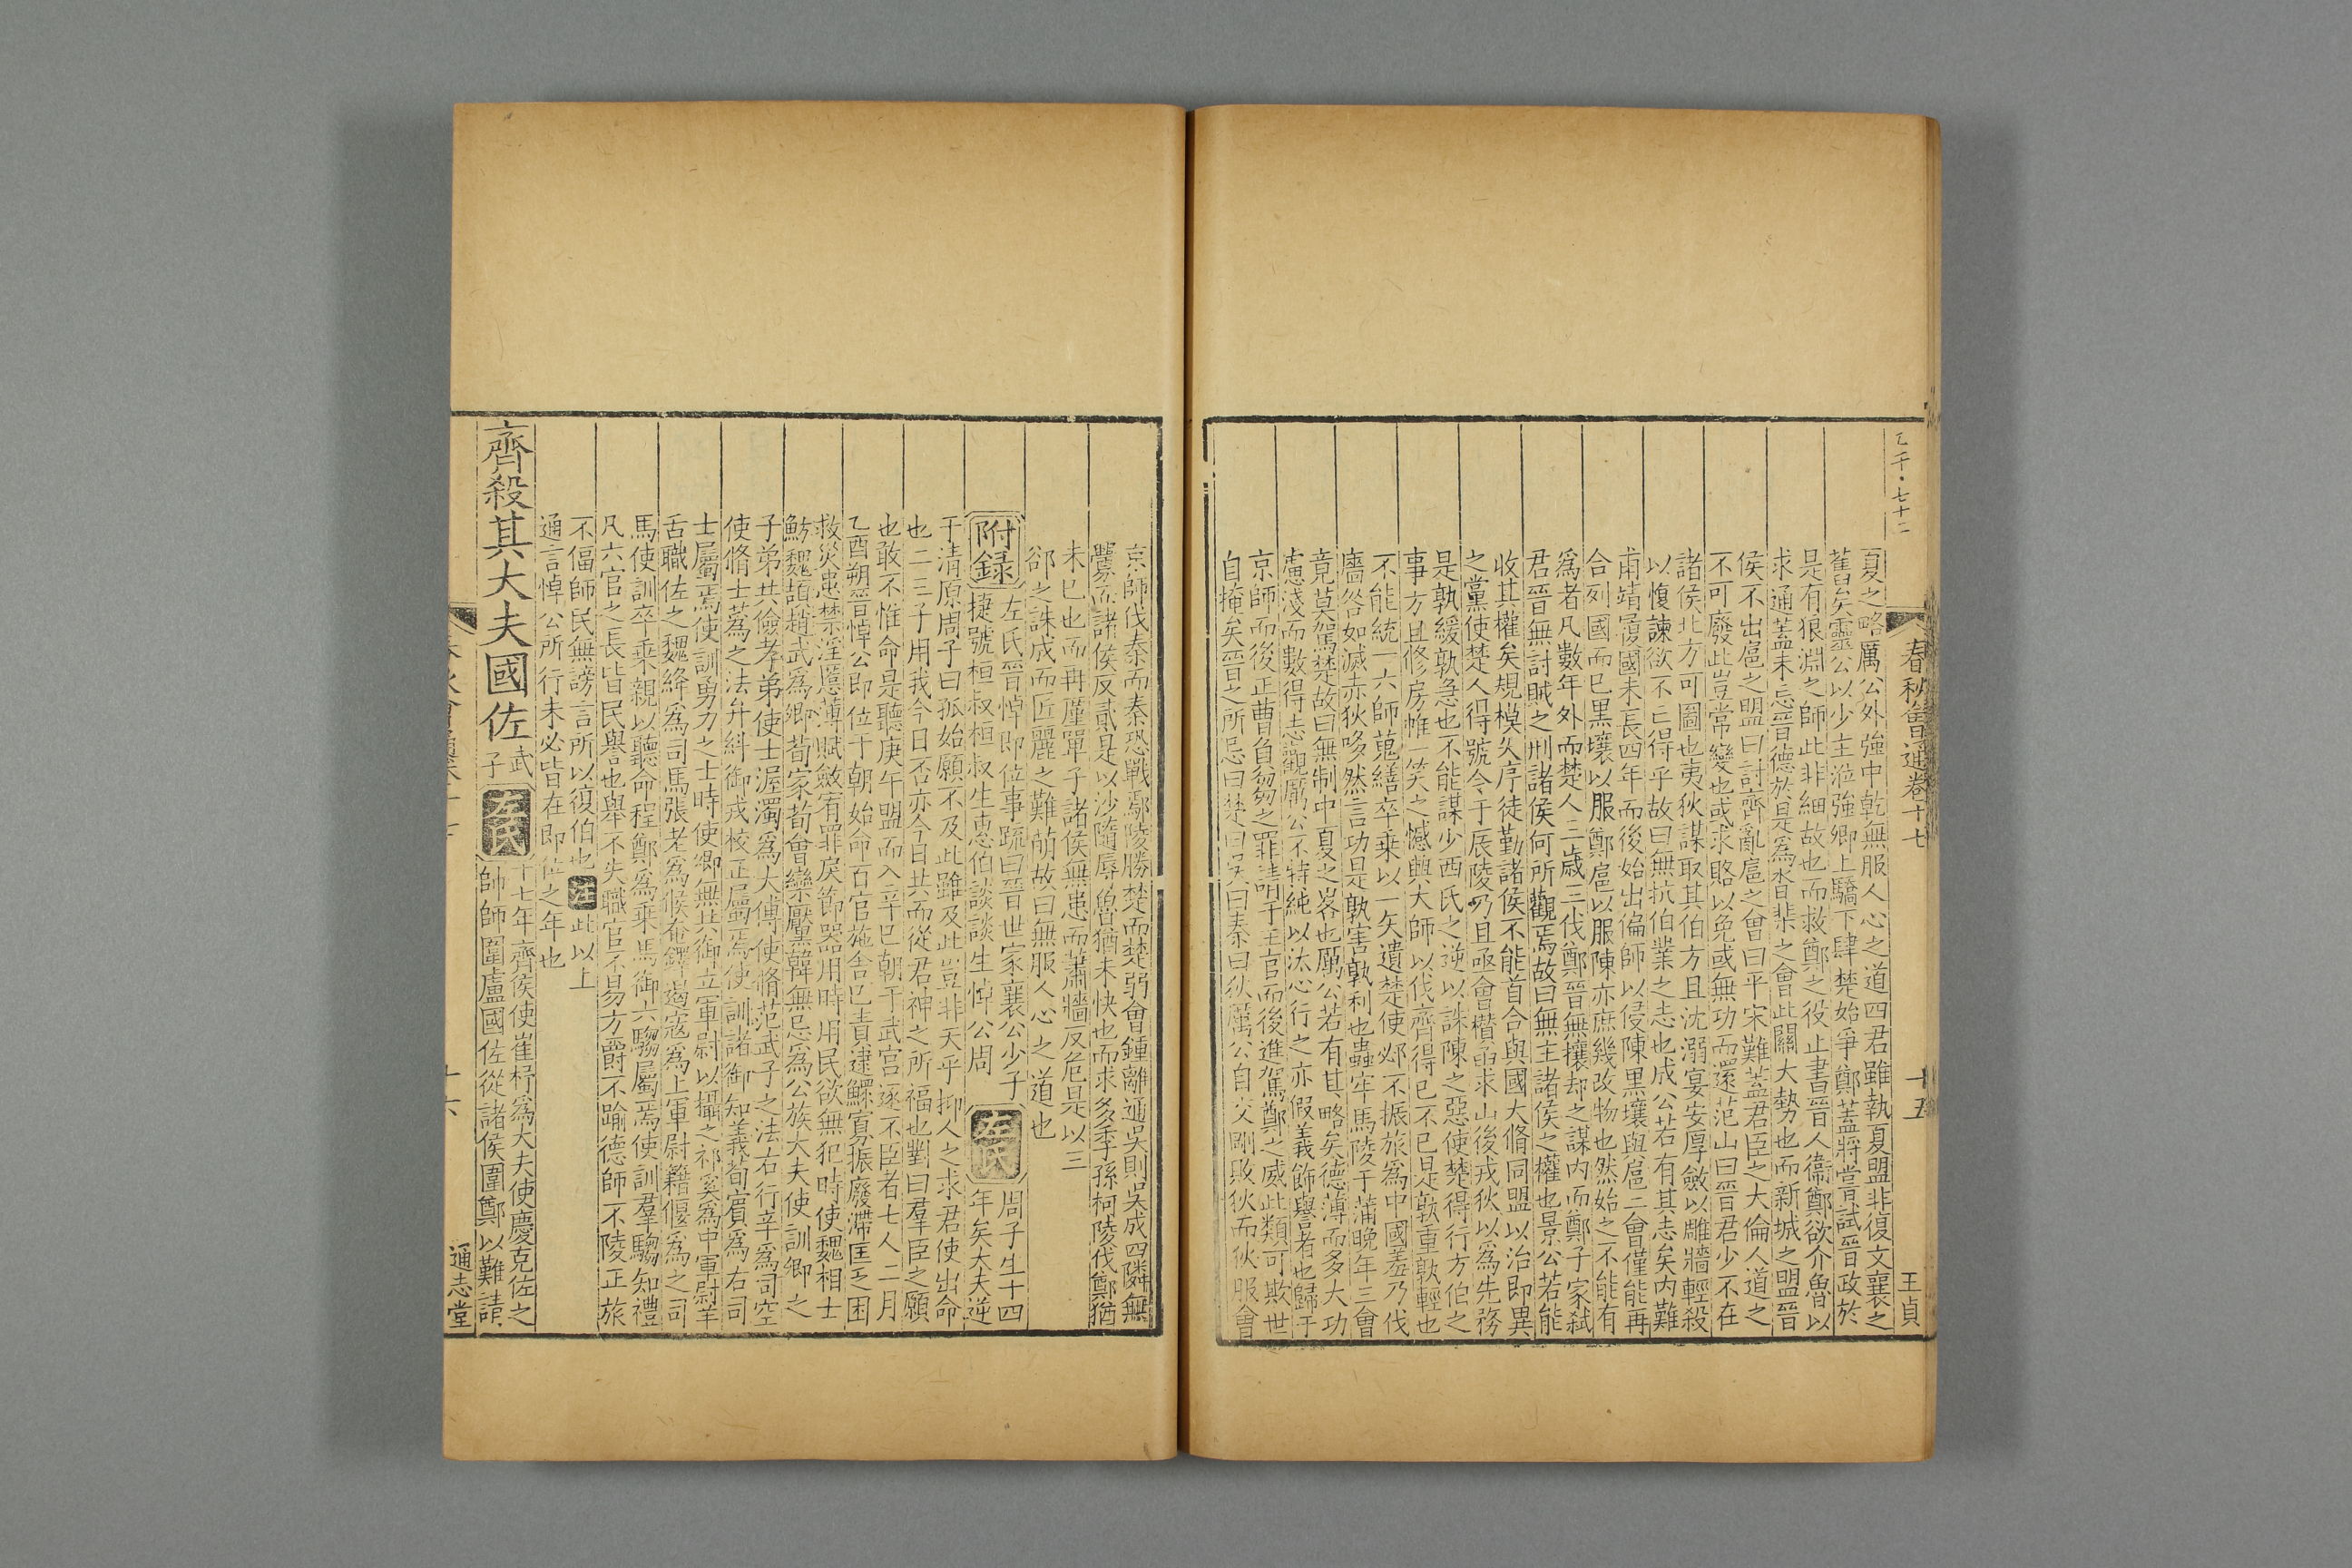 乙千·七十二
春秋會通卷十七
十五
王貞
夏之略厲公外強中乾無服人心之道四君雖執夏盟非復文襄之
舊矣靈公以少主涖強卿上驕下肆楚始爭鄭蓋將嘗試晉政於
是有狼淵之師此非細故也而救鄭之役止書晉人衞鄭欲介魯以
求通蓋未忘晉德於是爲沓棐之會此關大勢也而新城之盟晉
侯不出扈之盟曰討齊亂扈之會曰平宋難蓋君臣之大倫人道之
不可廢此豈常變也或求賂以免或無功而還范山曰晉君少不在
諸侯北方可圖也夷狄謀取其伯方且沈溺宴安厚斂以雕牆輕殺
以愎諫欲不亡得乎故曰無抗伯業之志也成公若有其志矣内難
甫靖國未長四年而後始出偏師以侵陳黑壤與扈二會僅能再
合列國而已黑壤以服鄭扈以服陳亦庶幾改物也然始之不能有
爲者凡數年外而楚人二歲三伐鄭晉無攘却之謀内而鄭子家弑
君晉無討賊之刑諸侯何所觀焉故曰無主諸侯之權也景公若能
收其權矣規模久序徒勤諸侯不能首合與國大脩同盟以治即異
之黨使楚人得號令于辰陵乃且亟會欑函求山後戎狄以爲先務
是孰緩孰急也不能謀少西氏之逆以誅陳之惡使楚得行方伯之
事方且修房帷一笑之憾興大師以伐齊得已不已是孰重孰輕也
不能統一六師蒐繕卒乗以一矢遺楚使邲不振旅爲中國羞乃伐
廧咎如滅赤狄哆然言功是孰害孰利也蟲牢馬陵于蒲晚年三會
竟莫駕楚故曰無制中夏之畧也厲公若有其略矣德薄而多大功
慮淺而數得志觀厲公不特純以汰心行之亦假義飾譽者也歸于
京師而後正曹負芻之罪請于王官而後進駕鄭之威此類可欺世
自掩矣晉之所忌曰楚曰吳曰秦曰狄厲公自交剛敗狄而狄服會
京師伐秦而秦恐戰鄢陵勝楚而楚弱會鍾離通吳則吳成四隣無
釁而諸侯反貳是以沙隨辱魯猶未快也而求多季孫柯陵伐鄭猶
未已也而再廑單子諸侯無患而蕭牆反危是以三
郤之誅成而匠麗之難萌故曰無服人心之道也
附録
左氏晉悼即位事疏曰晉世家襄公少子
捷號桓叔桓叔生惠伯談談生悼公周
左氏
周子生十四
年矣大夫逆
于清原周子曰孤始願不及此雖及此豈非天乎抑人之求君使出命
也二三子用我今日否亦今日共而從君神之所福也對曰羣臣之願
也敢不惟命是聽庚午盟而入辛巳朝于武宫逐不臣者七人二月
乙酉朔晉悼公即位于朝始命百官施舍已責逮鰥寡振廢滯匡乏困
救災患禁淫慝薄賦斂宥罪戾節器用時用民欲無犯時使魏相士
魴魏頡趙武爲卿荀家荀會欒黶韓無忌爲公族大夫使訓卿之
子弟共儉孝弟使士渥濁爲大傅使脩范武子之法右行辛爲司空
使脩士蒍之法弁糾御戎校正屬焉使訓諸御知義荀賓爲右司
士屬焉使訓勇力之士時使卿無共御立軍尉以攝之祁奚爲中軍尉羊
舌職佐之魏絳爲司馬張老爲候奄鐸遏寇爲上軍尉籍偃爲之司
馬使訓卒乘親以聽命程鄭爲乘馬御六騶屬焉使訓羣騶知禮
凡六官之長皆民譽也舉不失職官不易方爵不踰德師不陵正旅
不偪師民無謗言所以復伯也
注
此以上
通言悼公所行未必皆在即位之年也
齊殺其大夫國佐
武
子
左氏
十七年齊侯使崔杼爲大夫使慶克佐之
帥師圍盧國佐從諸侯圍鄭以難請
十六
通志堂